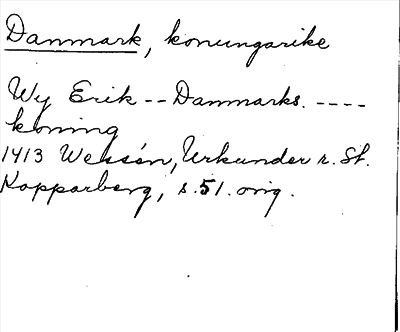 Danmark, konungarike
Wy Erik -- Danmarks. ----
koning
1413 Wessén, Urkunder r. St.
Kopparberg, s. 51. orig.